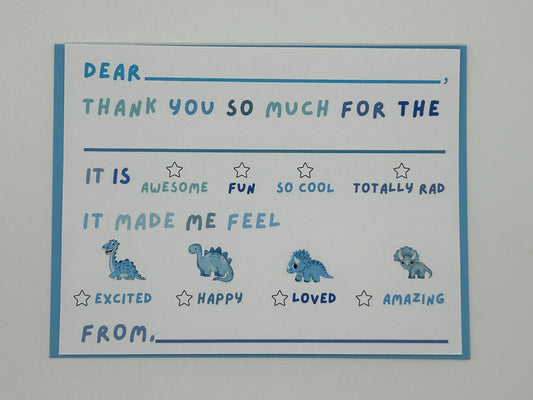 DEAR ,
THANK YOU SO MUCH FOR THE
IT IS AWESOME FUN SO COOL TOTALLY RAD
IT MADE ME FEEL
EXCITED HAPPY LOVED AMAZING
FROM,